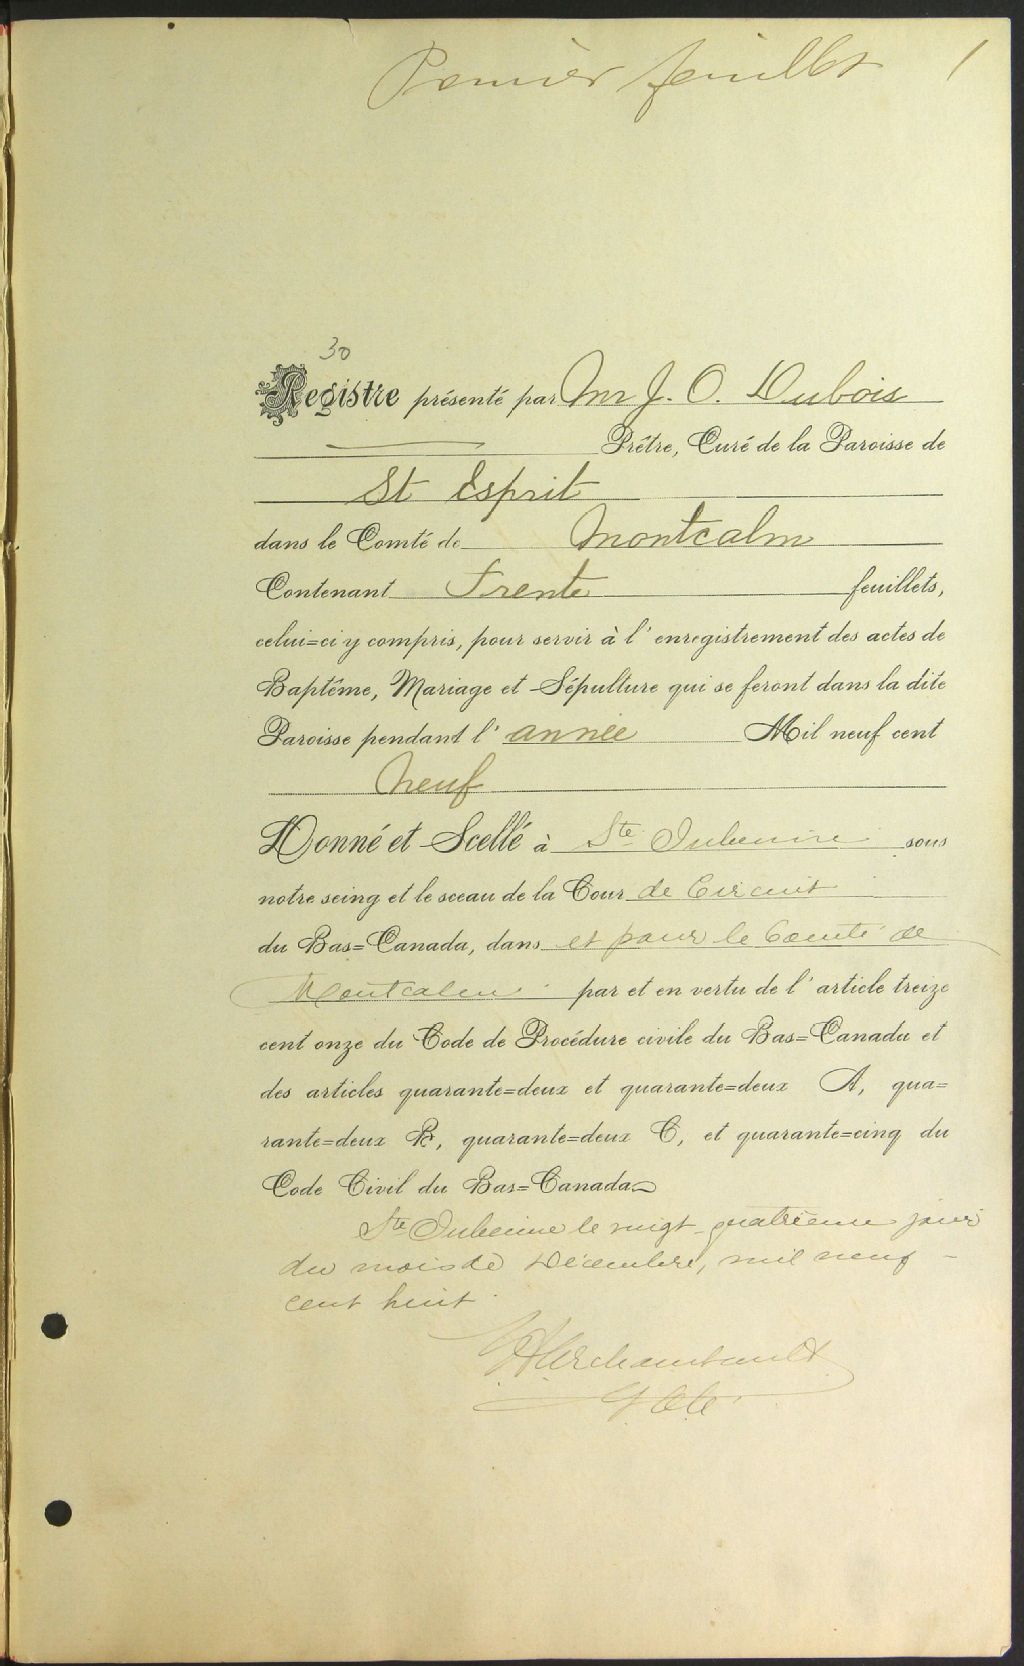 Premier feuillet 1
30
Registre présenté par Mr J. O. Dubois
Prêtre, Curé de la Paroisse de
St Esprit
dans le Comté de Montcalm
Contenant Trente feuillets,
celui=ci y compris, pour servir à l'enregistrement des actes de
Baptême, Mariage et Sépulture qui se feront dans la dite
Paroisse pendant l'année Mil neuf cent
Neuf
Donné et Scellé à Ste Julienne sous
notre seing et le sceau de la Cour de Circuit
du Bas=Canada, dans et pour le Comté de
Montcalm par et en vertu de l'article treize
cent onze du Code de Procédure civile du Bas=Canada et
des articles quarante=deux et quarante=deux A, qua=
rante=deux B, quarante=deux C, et quarante=cinq du
Code Civil du Bas=Canada
Ste Julienne le vingt-quatrieme jour
du mois de Décembre, mil neuf -
cent huit.
Archambault